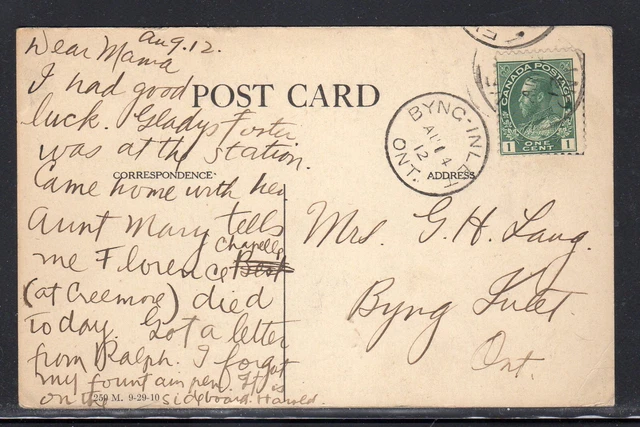 Aug. 12.
Dear Mama
I had good
luck. Gladys Foster
was at the station.
Came home with her
Aunt Mary tells
me Florence Chapelle
(at Creemore) died
today. Got a letter
from Ralph. I forgot
my fountain pen. It is
on the sideboard. Harold.
POST CARD
CORRESPONDENCE
ADDRESS
250 M. 9-29-10
BYNG-INLET
AU 14
12
ONT.
CANADA POSTAGE
1 ONE CENT 1
Mrs. G. H. Lang.
Byng Inlet.
Ont.